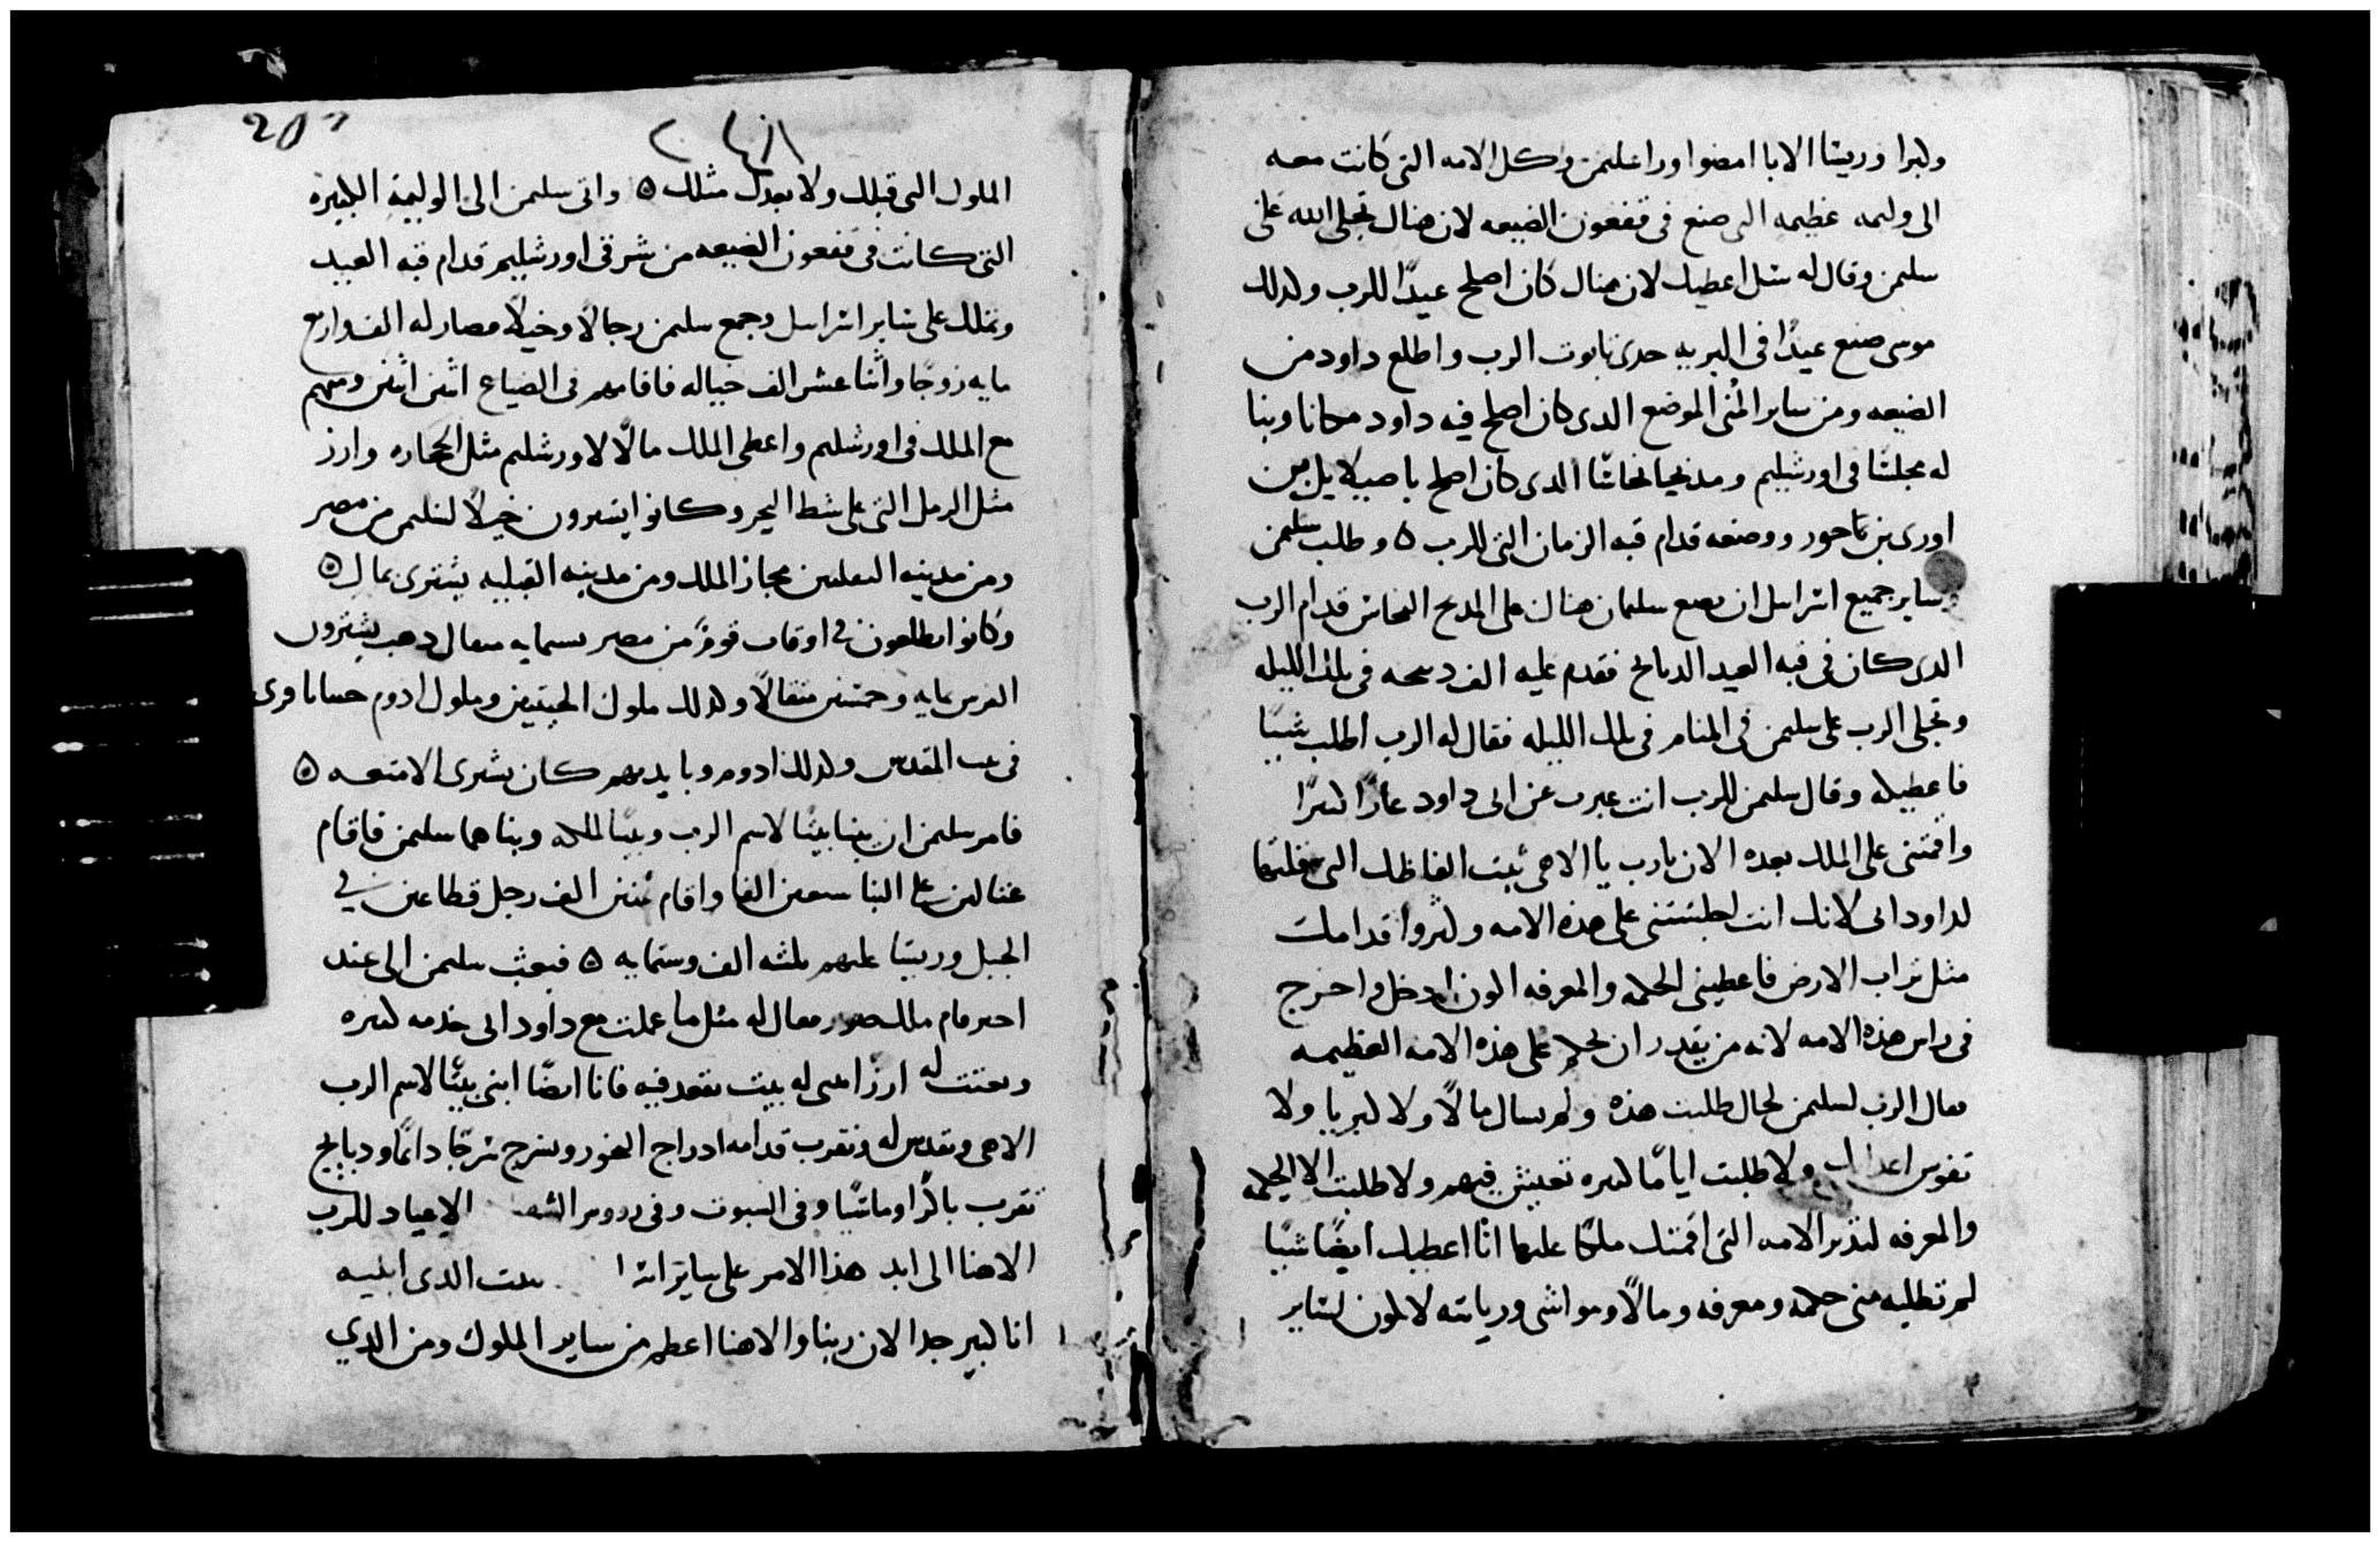 وكبرا وريسا الابا امضوا ورا سليمن وكل الامه التى كانت معه
الى وليمه عظيمه التى صنع فى قفعون الضيعه لان هناك تجلى الله على
سليمن وقال له سل اعطيك لان هناك كان اصلح عيدًا للرب ولدلك
موسى صنع عيدًا فى البريه حدى تابوت الرب واطلع داود من
الضيعه ومن ساير المدن الموضع الدى كان اصلح فيه داود مكانا وبنا
له مجلسًا فى اورشليم ومدبحا نحاسًا الدى كان اصلح باصيلايل بن
اورى بن ناحور ووضعه قدام قبه الزمان التى للرب ه وطلب سليمن
وساير جميع اسرايل ان يصع سليمان هناك على المدبح النحاس قدام الرب
الدى كان فى قبه العيد الدبايح فقدم عليه الف دبيحه فى تلك الليله
وتجلى الرب على سليمن فى المنام فى تلك الليله فقال له الرب اطلب شيًا
فاعطيكه وقال سليمن للرب انت عبرت عن ابى داود عارًا كبيرًا
واقمتنى على الملك بعده الان يارب يا الاهى ثبت الفاظك التى قلتها
لداود ابى لانك انت اجلستنى على هده الامه وكبروا قدامك
مثل تراب الارض فاعطينى الحكمه والمعرفه اكون ادخل واخرج
فى راس هذه الامه لانه من يقدر ان يحكم على هذه الامه العظيمه
فقال الرب لسليمن لحال طلبت هذه ولم تسال مالًا ولا كبريا ولا
نفوس اعداك ولا طلبت ايامًا كبيره تعيش فيهم ولا طلبت الا الحكمه
والمعرفه لتدبر الامه التى اقمتك ملكًا عليها انا اعطيك ايضًا شيًا
لم تطلبه منى حكمه ومعرفه ومالًا ومواشى ورياسه لا يكون لساير
الملوك التى قبلك ولا بعدك مثلك ه واتى سليمن الى الوليمة الكبيره
التى كانت فى قفعون الضيعه من شرقى اورشليم قدام قبه العيد
وتملك على ساير اسرايل وجمع سليمن رجالًا وخيلًا فصار له الف واربع
مايه زوجًا واثنا عشر الف خياله فاقامهم فى الضياع اثنين اثنين ومنهم
مع الملك فى اورشليم واعطى الملك مالًا لاورشليم مثل الحجاره وارز
مثل الرمل التى على شط البحر وكانوا يشترون خيلًا لسليمن من مصر
ومن مدينه مجاز الملك ومن مدينه القبليه يشترى بمال ه
وكانوا يطلعون فى اوقات قومًا من مصر بستمايه متقال دهب يشترون
الفرس بمايه وخمسين متقالًا ولدلك ملوك الحيتيين وملوك ادوم
فى بيت المقدس ولدلك ادوم وبايديهم كان يشترى الامتعه ه
فامر سليمن ان يبنا بيتًا لاسم الرب وبيتًا للملكه وبناهما سليمن فاقام
عتالين على البنا سبعين الفا واقام تمنين الف رجل قطاعين فى
الجبل وريسا عليهم تلته الف وستمايه ه فبعث سليمن الى عند
احيرمام ملك صور فقال له مثل ما عملت مع داود ابى خدمه كبيره
وبعتت له ارزًا ابنى له بيت يقعد فيه فانا ايضًا ابنى بيتًا لاسم الرب
الاهى ونقدس له ونقرب قدامه ادراج البخور ونسرج سرجًا دايمًا ودبايح
نقرب باكرًا ومامسيًا وفى السبوت وفى رووس الشهور الاعياد للرب
الاهنا الى ابد هذا الامر على ساير بيت الدى ابنيه
انا كبير جدا لان ربنا والاهنا اعظم من ساير الملوك ومن الدي